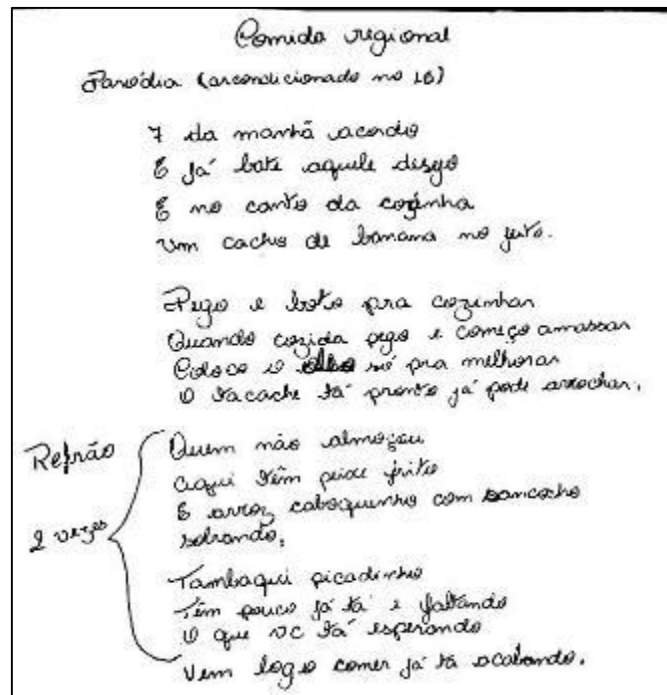 Comida regional
Paródia (arcondicionado no 16)
7 da manhã acordo
E já bate aquele desejo
E no canto da cozinha
Um cacho de banana no jeito.
Pego e boto pra cozinhar
Quando cozida pego e começo amassar
Coloco o óleo só pra melhorar
O tacache tá pronto já pode arrochar.
Refrão
2 vezes
Quem não almoçou
aqui têm peixe frito
E arroz caboquinho com sancocho
sobrando,
Tambaqui picadinho
Têm pouco já tá e faltando
O que vc tá esperando
Vem logo comer já tá acabando.